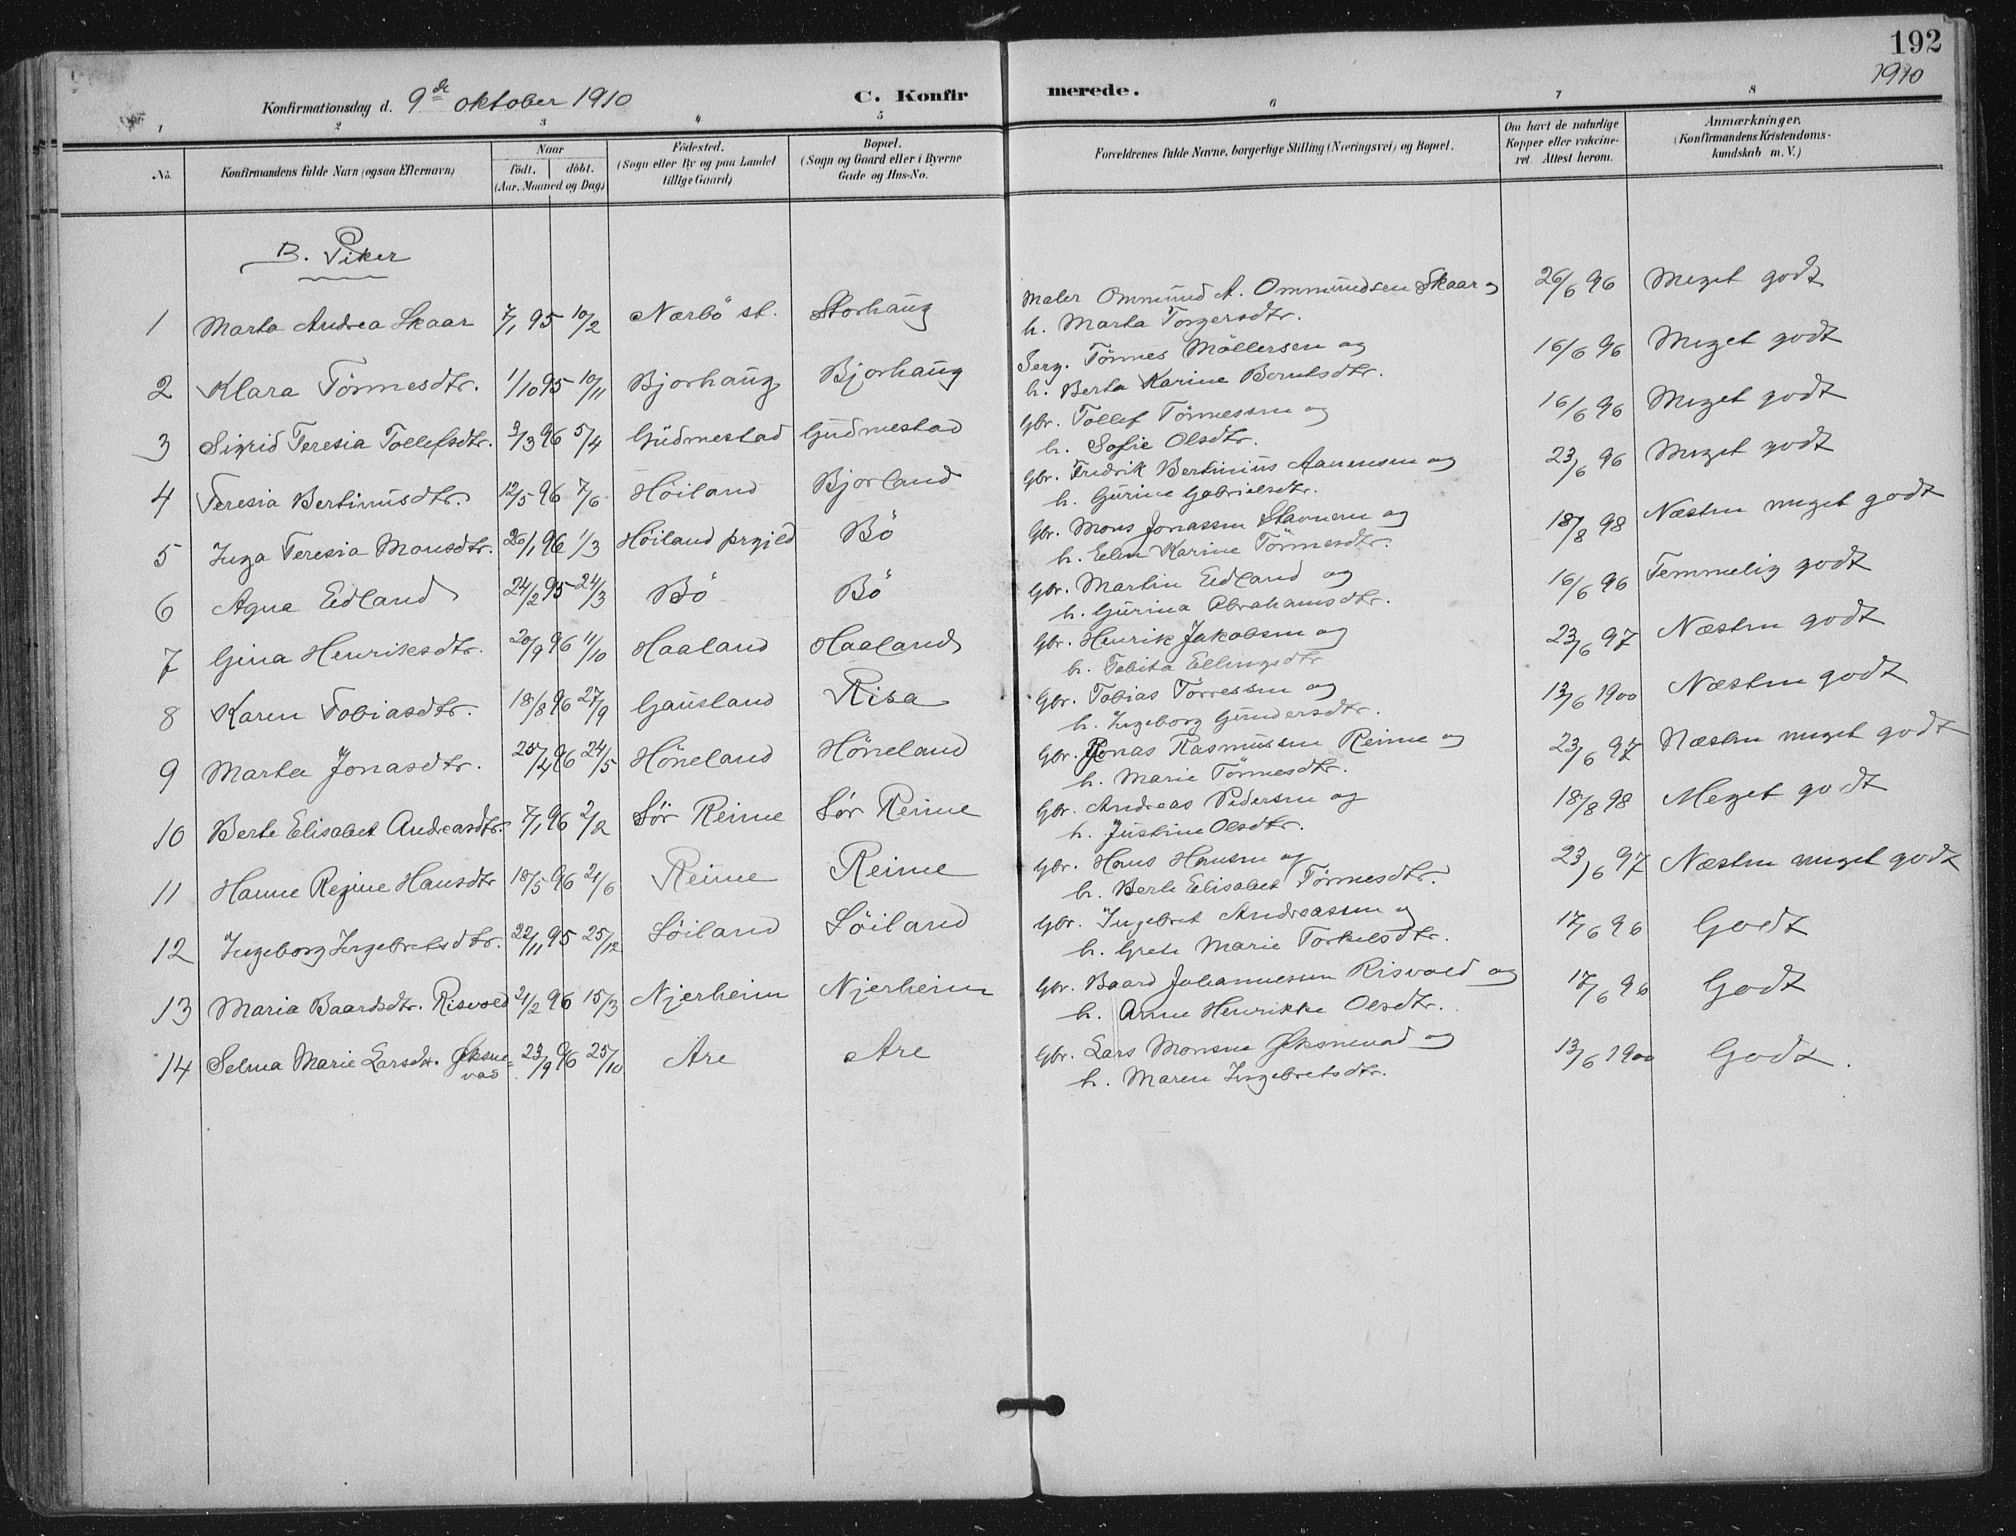 192
1910
Konfirmationsdag d. 9de oktober 1910 C. Konfirmerede.
1 2 3 4 5 6 7 8
No.
Konfirmandens fulde Navn (ogsaa Efternavn)
Naar
födt. döbt.
(Aar, Maaned og Dag)
Födested.
(Sogn eller By og paa Landet
tillige Gaard)
Bopæl.
(Sogn og Gaard eller i Byerne
Gade og Hus-No.
Forældrenes fulde Navne, borgerlige Stilling (Næringsvei) og Bopæl.
Om havt de naturlige
Kopper eller vakcine-
ret. Attest herom.
Anmærkninger.
(Konfirmandens Kristendoms-
kundskab m. V.)
B. Piker
1 Marta Andrea Skaar 7/1 95 10/2 Nærbö st. Storhaug Maler Ommund A. Ommundsen Skaar og 26/6 96 Meget godt
h. Marta Torgersdtr.
2 Klara Tönnesdtr. 1/10 95 10/11 Bjorhaug Bjorhaug Serg. Tönnes Möllersen og 16/6 96 Meget godt
h. Berta Karine Berntsdtr.
3 Sigrid Teresia Tollefsdtr. 3/3 96 5/4 Gudmestad Gudmestad Gbr. Tollef Tönnessen og 16/6 96 Meget godt
h. Sofie Olsdtr.
4 Teresia Bertinusdtr. 12/5 96 7/6 Höiland Bjorland Gbr. Fredrik Bertinius Aanensen og 23/6 96 Meget godt
h. Gurine Gabrielsdtr.
5 Inga Teresia Monsdtr. 26/1 96 1/3 Höiland prgjld Bö Gbr. Mons Jonassen Stavnem og 18/8 98 Næsten meget godt
h. Elen Karine Tönnesdtr.
6 Agna Eidland 24/2 95 24/3 Bö Bö Gbr. Martin Eidland og 16/6 96 Temmelig godt
h. Gurina Abrahamsdtr.
7 Gina Henriksdtr. 20/9 96 11/10 Haaland Haaland Gbr. Henrik Jakobsen og 23/6 97 Næsten godt
h. Tabita Ellingsdtr
8 Karen Tobiasdtr. 18/8 96 27/9 Gausland Risa Gbr. Tobias Torressen og 13/6 1900 Næsten godt
h. Ingeborg Gundersdtr.
9 Marta Jonasdtr. 25/4 96 24/5 Höneland Höneland Gbr. Jonas Rasmussen Reime og 23/6 97 Næsten meget godt
h. Marie Tönnesdtr.
10 Berte Elisabet Andreasdtr. 7/1 96 2/2 Sör Reime Sör Reime Gbr. Andreas Pedersen og 18/8 98 Meget godt
h. Justine Olsdtr.
11 Hanne Regine Hansdtr 18/5 96 21/6 Reime Reime Gbr. Hans Hansen og 23/6 97 Næsten meget godt
h. Berte Elisabet Tönnesdtr.
12 Ingeborg Ingebretsdtr. 22/11 95 25/12 Löiland Löiland Gbr. Ingebret Andreassen og 17/6 96 Godt
h. Grete Marie Torkelsdtr.
13 Maria Baardsdtr. Risvold 21/2 96 15/3 Njerheim Njerheim Gbr. Baard Johannessen Risvold og 17/6 96 Godt
h. Anne Henrikke Olsdtr.
14 Selma Marie Larsdtr. Øksne- 23/9 96 25/10 Are Are Gbr. Lars Monsen Øksnevad og 13/6 1900 Godt.
vad h. Maren Ingebretsdtr.